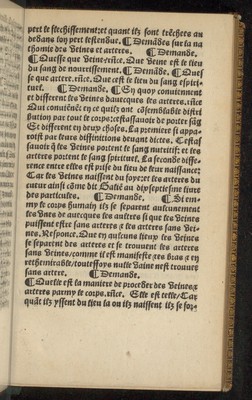 pert se flechissement:et quant ilz sont trēchets au
dedans son pert lestendue. ¶ Demādes sur la na
thomie des veines et arteres. ¶ Demande.
¶ Quesse que veine:rn̄ce. Que veine est le lieu
du sang de nourrissement. ¶ Demāde. ¶ Quef
se que artere. rn̄ce. Que cest le lieu du sang espiri-
tuel. ¶ Demande. ¶ En quoy conuiennent
et different les veines dauecques les arteres. rn̄ce.
Que conuiēnēt en ce quilz ont ensemble distri
bution par tout le corps:cestassauoir de porter sāg
Et different en deux choses. La premiere si appa-
roist par leurs diffinitions deuant dictes. Cestas
sauoir q̄ les veines portent le sang nutritif: et les
arteres portent le sang spirituel. La seconde diffe-
rence entre elles est prise du lieu de leur naissance;
Car les veines naissent du foye:et les arteres du
cueur ainsi cōme dit Galiē au dixseptiesme liure
des particules. ¶ Demande. ¶ Si en-
my le corps humain ilz se separent aulcunement
les vnes de auecques les aultres si que les veines
puissent estre sans arteres et les arteres sans vei-
nes. Responce. Que en aulcuns lieux les veines
se separent des arteres et se trouuent les arteres
sans veines,comme il est manifeste es bras et en
rethemirable/toutesfoys nulle vaine nest trouuee
sans artere. ¶ Demande.
¶ Quelle est la maniere de proceder des veines et
arteres parmy le corps. rn̄ce. Elle est telle/Car
quāt ilz yssent du lieu la ou ilz naissent ilz se for-